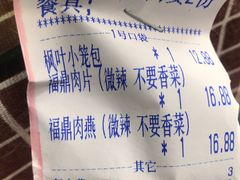 餐具:
1号口袋
枫叶小笼包
* 1 12.88
福鼎肉片(微辣 不要香菜)
* 1 16.88
福鼎肉燕(微辣 不要香菜)
* 1 16.88
其它
3